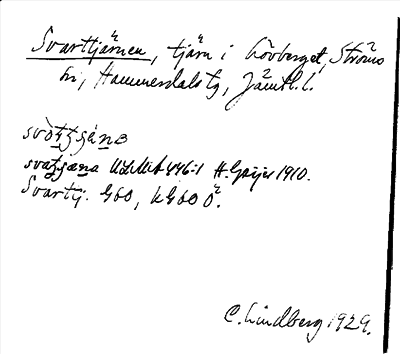 Svarttjärnen, tjärn i Lövberget, Ströms
sn, Hammerdals tg, Jämtl. l.
svat̲ʒænа ULMA 446:1 H. Geijer 1910.
Svarttj. G60, kG60 Ö.
C. Lindberg 1929.